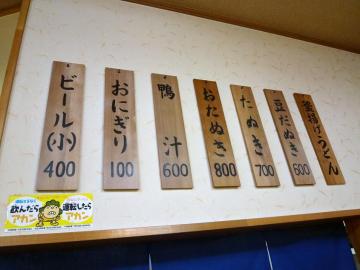 釜揚げうどん
豆だぬき
600
たぬき
700
おたぬき
800
鴨汁
600
おにぎり
100
ビール(小)
400
飲んだら
アカン
運転したら
アカン